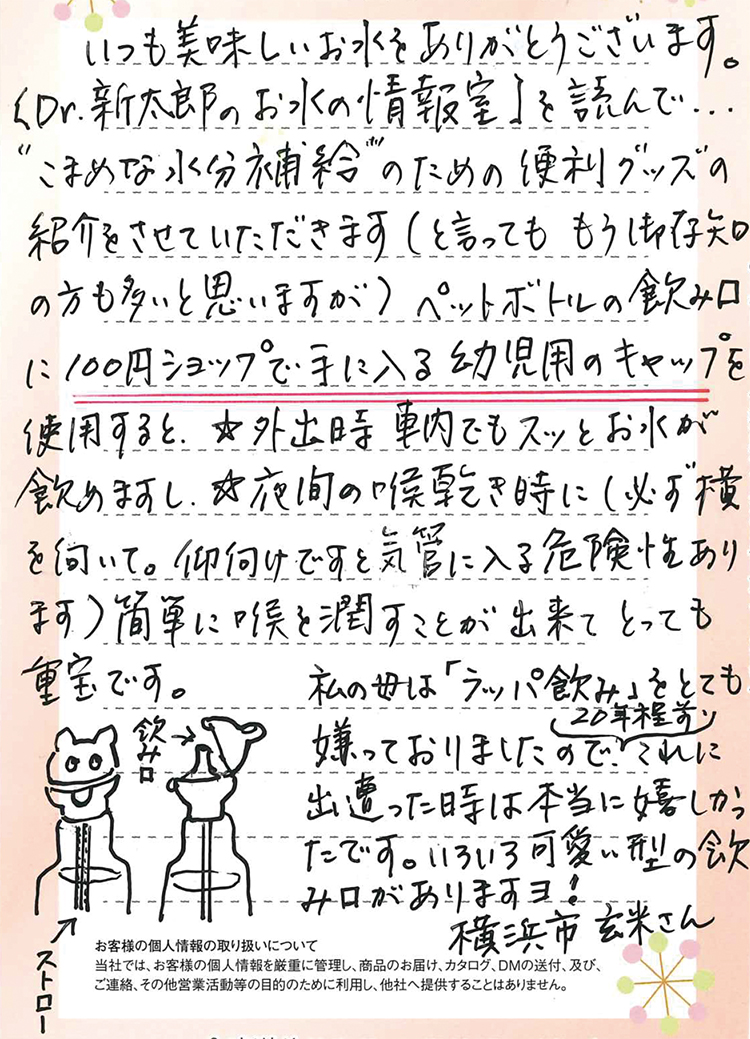 いつも美味しいお水をありがとうございます。
「Dr.新太郎のお水の情報室」を読んで...
"こまめな水分補給"のための便利グッズの
紹介をさせていただきます(と言っても もう御存知
の方も多いと思いますが)ペットボトルの飲み口
に100円ショップで手に入る幼児用のキャップを
使用すると、☆外出時 車内でもスッとお水が
飲めますし、☆夜間の喉乾き時に(必ず横
を向いて。仰向けですと気管に入る危険性あり
ます)簡単に喉を潤すことが出来てとっても
重宝です。
私の母は「ラッパ飲み」をとても
嫌っておりましたので、(20年程前)これに
出遭った時は本当に嬉しかっ
たです。いろいろ可愛い型の飲
み口がありますヨ!
横浜市 玄米さん
飲み口
ストロー
お客様の個人情報の取り扱いについて
当社では、お客様の個人情報を厳重に管理し、商品のお届け、カタログ、DMの送付、及び、
ご連絡、その他営業活動等の目的のために利用し、他社へ提供することはありません。